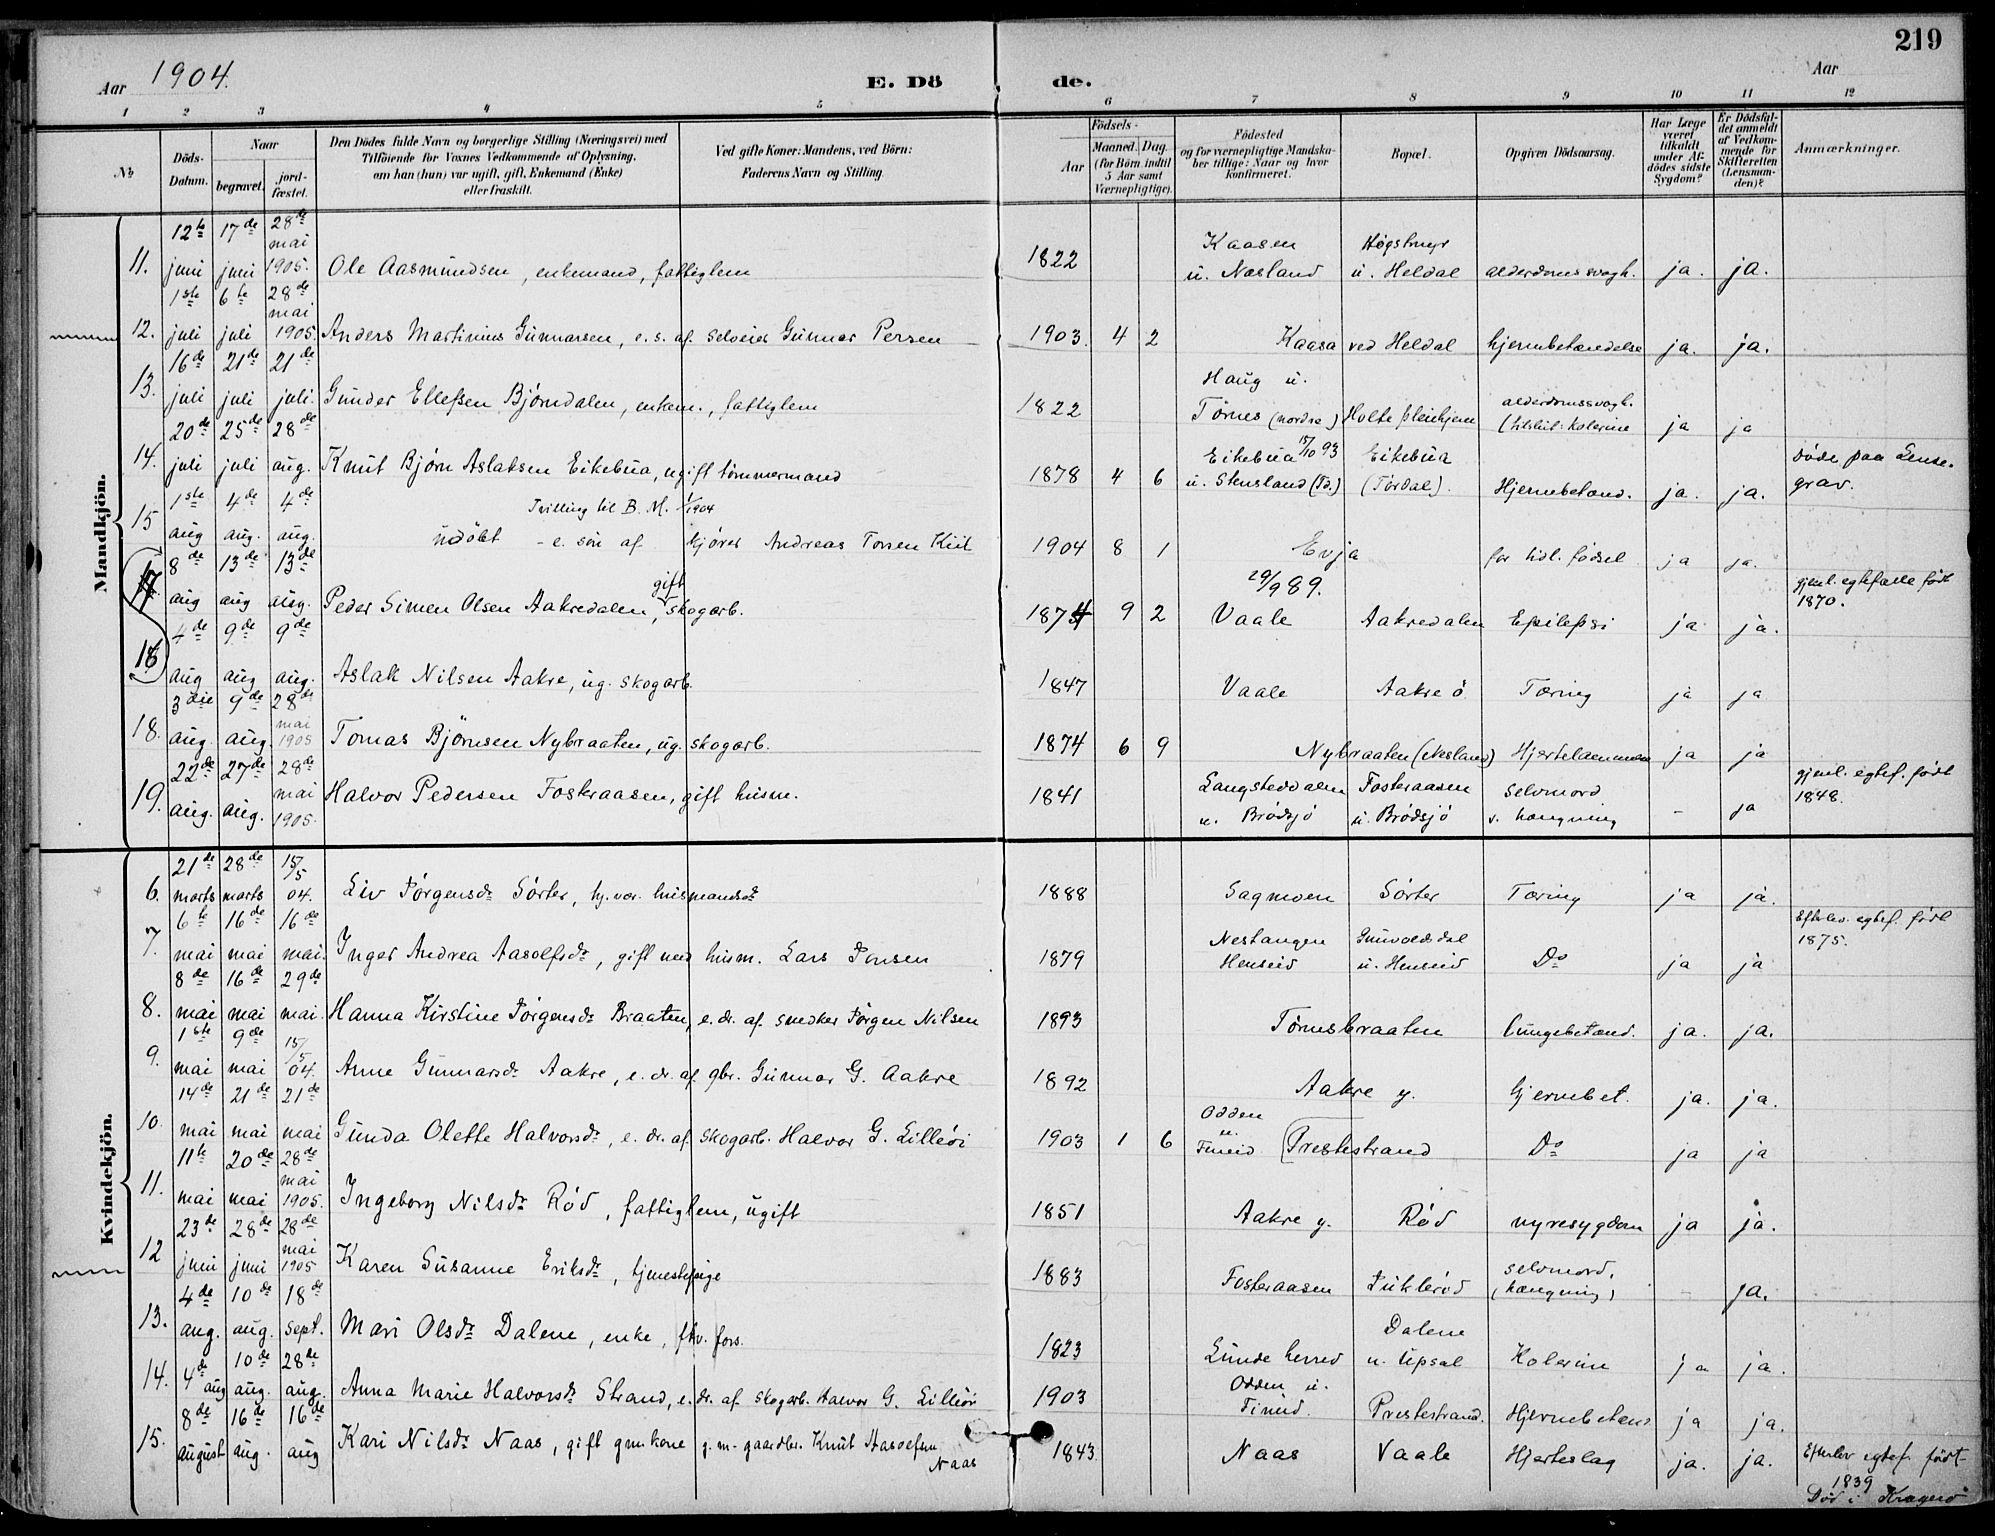 219
Aar 1904.
E. Dö de.
Aar
1 2 3 4 5 6 7 8 9 10 11 12
No
Döds-Datum.
Naar
begravet.
jord-fæstet.
Den Dödes fulde Navn og borgerlige Stilling (Næringsvei) med
Tilföiende for Voxnes Vedkommende af Oplysning,
om han (hun) var ugift, gift, Enkemand (Enke)
eller fraskilt.
Ved gifte Koner: Mandens, ved Börn:
Faderens Navn og Stilling.
Födsels-
Aar
Maaned. Dag.
(for Börn indtil
5 Aar samt
Værnepligtige).
Födested
og for værnepligtige Mandska-
ber tillige: Naar og hvor
konfirmeret.
Bopæl.
Opgiven Dödsaarsag.
Har Læge
været
tilkaldt
under Af-
dödes sidste
Sygdom?
Er Dödsfal-
det anmeldt
af Vedkom-
mende for
Skifteretten
(Lensman-
den)?
Anmærkninger.
Mandkjön.
11. 12te juni 17de juni 28de mai 1905. Ole Aasmundsen, enkemand, fattiglem 1822 Kaasen u. Næsland u. Heldal alderdomssvagh. ja. ja.
12. 1ste juli 6te juli 28de mai 1905. Anders Martinius Gunnarsen, e. s. af selveier Gunnar Persen 1903. 4 2 Kaasa ved Heldal hjernebetændelse ja. ja.
13. 16de juli 21de juli 21de juli. Gunder Ellefsen Bjørndalen, enkem., fattiglem 1822 Haug u. Tørnes (nordre) Holte pleiehjem alderdomssvagh. (tilslut: kolerine ja ja
14. 20de juli 25de juli 28de aug. Knut Bjørn Aslaksen Eikebua, ugift tømmermand 1878 4 6 Eikebua 15/10 93 u. Stensland (Td.) Eikebua (Tørdal). Hjernebetænd. ja. ja. døde paa Lensegrav.
15 1ste aug 4de aug. 4de aug. Tvilling til B. M. 1/1904 udöbt - e. søn af kjører Andreas Torsen Kiil 1904 8 1 Evja for tidl. fødsel ja ja.
17 8de aug 13de aug 13de aug. Peder Simen Olsen Aakredalen, gift skogarb. 1874 9 2 29/9 89. Vaale Aakredalen Epilepsi ja ja. gjenl. egtefælle født 1870.
16 4de aug 9de aug 9de aug. Aslak Nilsen Aakre, ug. skogarb. 1847 Vaale Aakre ö. Tæring ja ja
18. 3die aug. 9de aug. 28de mai 1905 Tomas Bjørnsen Nybraaten, ug. skogarb. 1874 6 9 Nybraaten (Næsland) Hjertelammelse ja ja
19. 22de aug. 27de aug. 28de mai 1905. Halvor Pedersen Fosteraasen, gift husm. 1841 Langsteddalen u. Brødsjø Fosteraasen u. Brødsjø selvmord v. hængning - ja gjenl. egtef. født 1848.
Kvindekjön.
6. 21de marts 28de marts 15/5 04. Liv Jørgensdr Sørter, hj.vær. husmandsdr 1888 Sagmoen Sørter Tæring ja ja.
7. 6te mai 16de mai 16de mai. Inger Andrea Aasolfsdr, gift med husm. Lars Jonsen 1879 Nestangen Henseid Gunvoldsdal u. Henseid Do ja ja Efterlev. egtef. født 1875.
8. 8de mai 16de mai 29de mai. Hanna Kirstine Jørgensdr Braaten, e. dr. af snedker Jørgen Nilsen 1893 Tørnesbraaten lungebetænd. ja. ja.
9. 1ste mai 9de mai 15/5 04. Anne Gunnarsdr Aakre, e. dr. af gbr. Gunnar G. Aakre 1892 Aakre y. hjernebet. ja. ja.
10. 14de mai 21de mai 21de mai Gunda Olette Halvorsdr, e. dr. af skogarb. Halvor G. Lilleøi 1903 1 6 Odden u. Fineid (Prestestrand Do ja ja
11. 11te mai 20de mai 28de mai 1905. Ingeborg Nilsdr Rød, fattiglem, ugift 1851 Aakre y. Rød nyresygdom ja ja.
12 23de juni 28de juni 28de mai 1905 Karen Susanne Eriksdr, tjenestepige 1883 Fosteraasen Juklerød selvmord, (hængning) - ja.
13. 4de aug. 10de aug. 18de sept. Mari Olsdr Dalene, enke, fhv. fors. 1823 Lunde herred Dalene u. Upsal Kolerine ja ja.
14. 4de aug 10de aug. 28de aug. Anna Marie Halvorsdr Strand, e. dr. af skogarb. Halvor G. Lilleøi 1903 Odden u. Fineid. Prestestrand. Hjernebetænd ja ja.
15. 8de august 16de aug. 16de aug Kari Nilsdr Naas, gift gmkone g. m. gaardbr. Knut Aasolfsen Naas 1843. Naas Vaale Hjerteslag ja. ja. Efterlev egtef. født 1839
Død i Kragerø